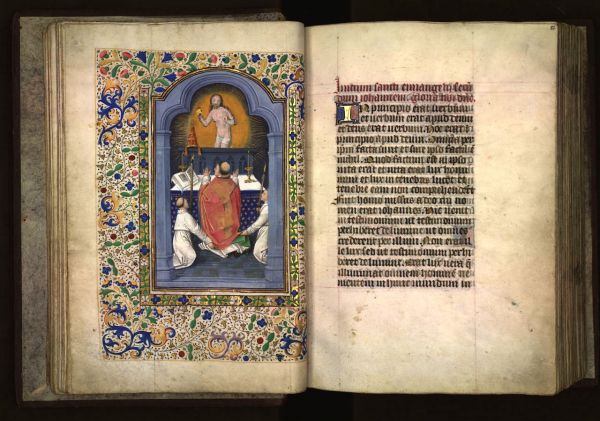 Inicium sancti euangelij secū
dum iohannem. gloria tibi dne.
IN principio erat verbum
et verbum erat apud deum
et deus erat verbum. Hoc erat ī
principio apud deum. Omnia per
ipsum facta sunt et sine ipso factū ē
nichil. Quod factum est in ipso
vita erat et vita erat lux homi
num et lux in tenebris lucet et
tenebre eam non comprehenderūt
Fuit homo missus a deo cui no
men erat iohannes. Hic venit
in testimonium ut testimonium
perhiberet de lumine ut omnes
crederent per illum. Non erat il
le lux sed ut testimonium perhi
beret de lumine. Erat lux vera q̄
illuminat omnem hominē ve
nientem in hunc mundum in